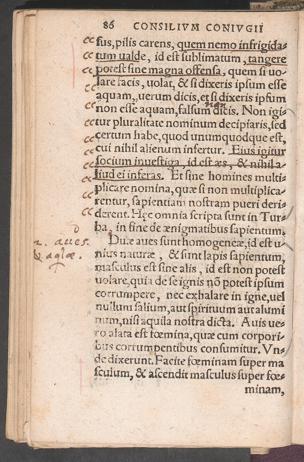 86 CONSILIVM CONIVGII
sus, pilis carens, quem nemo infrigida-
tum ualde, id est sublimatum, tangere
potest sine magna offensa, quem si uo-
lare facis, uolat, & si dixeris ipsum esse
aquam, uerum dicis, et si dixeris ipsum
non esse aquam, falsum dicis. Non igi-
tur pluralitate nominum decipiaris, sed
certum habe, quod unumquodque est,
cui nihil alienum infertur. Eius igitur
socium inuestiga, id est æs, & nihil a-
liud ei inferas. Et sine homines multi-
plicare nomina, quæ si non multiplica-
rentur, sapientiam nostram pueri deri-
derent. Hęc omnia scripta sunt in Tur-
ba, in fine de ænigmatibus sapientum,
2. aues
Duæ aues sunt homogeneæ, id est u-
nius naturæ, & sunt lapis sapientum,
masculus est sine alis, id est non potest
uolare, quia de se ignis nõ potest ipsum
corrumpere, nec exhalare in igne, uel
nullum salium, aut spirituum aut alumi
num, nisi aquila nostra dicta. Auis ue-
ro alata est fœmina, quæ cum corpori-
bus corrumpentibus consumitur. Vn-
de dixerunt. Facite fœminam super ma
sculum, & ascendit masculus super fœ-
minam,